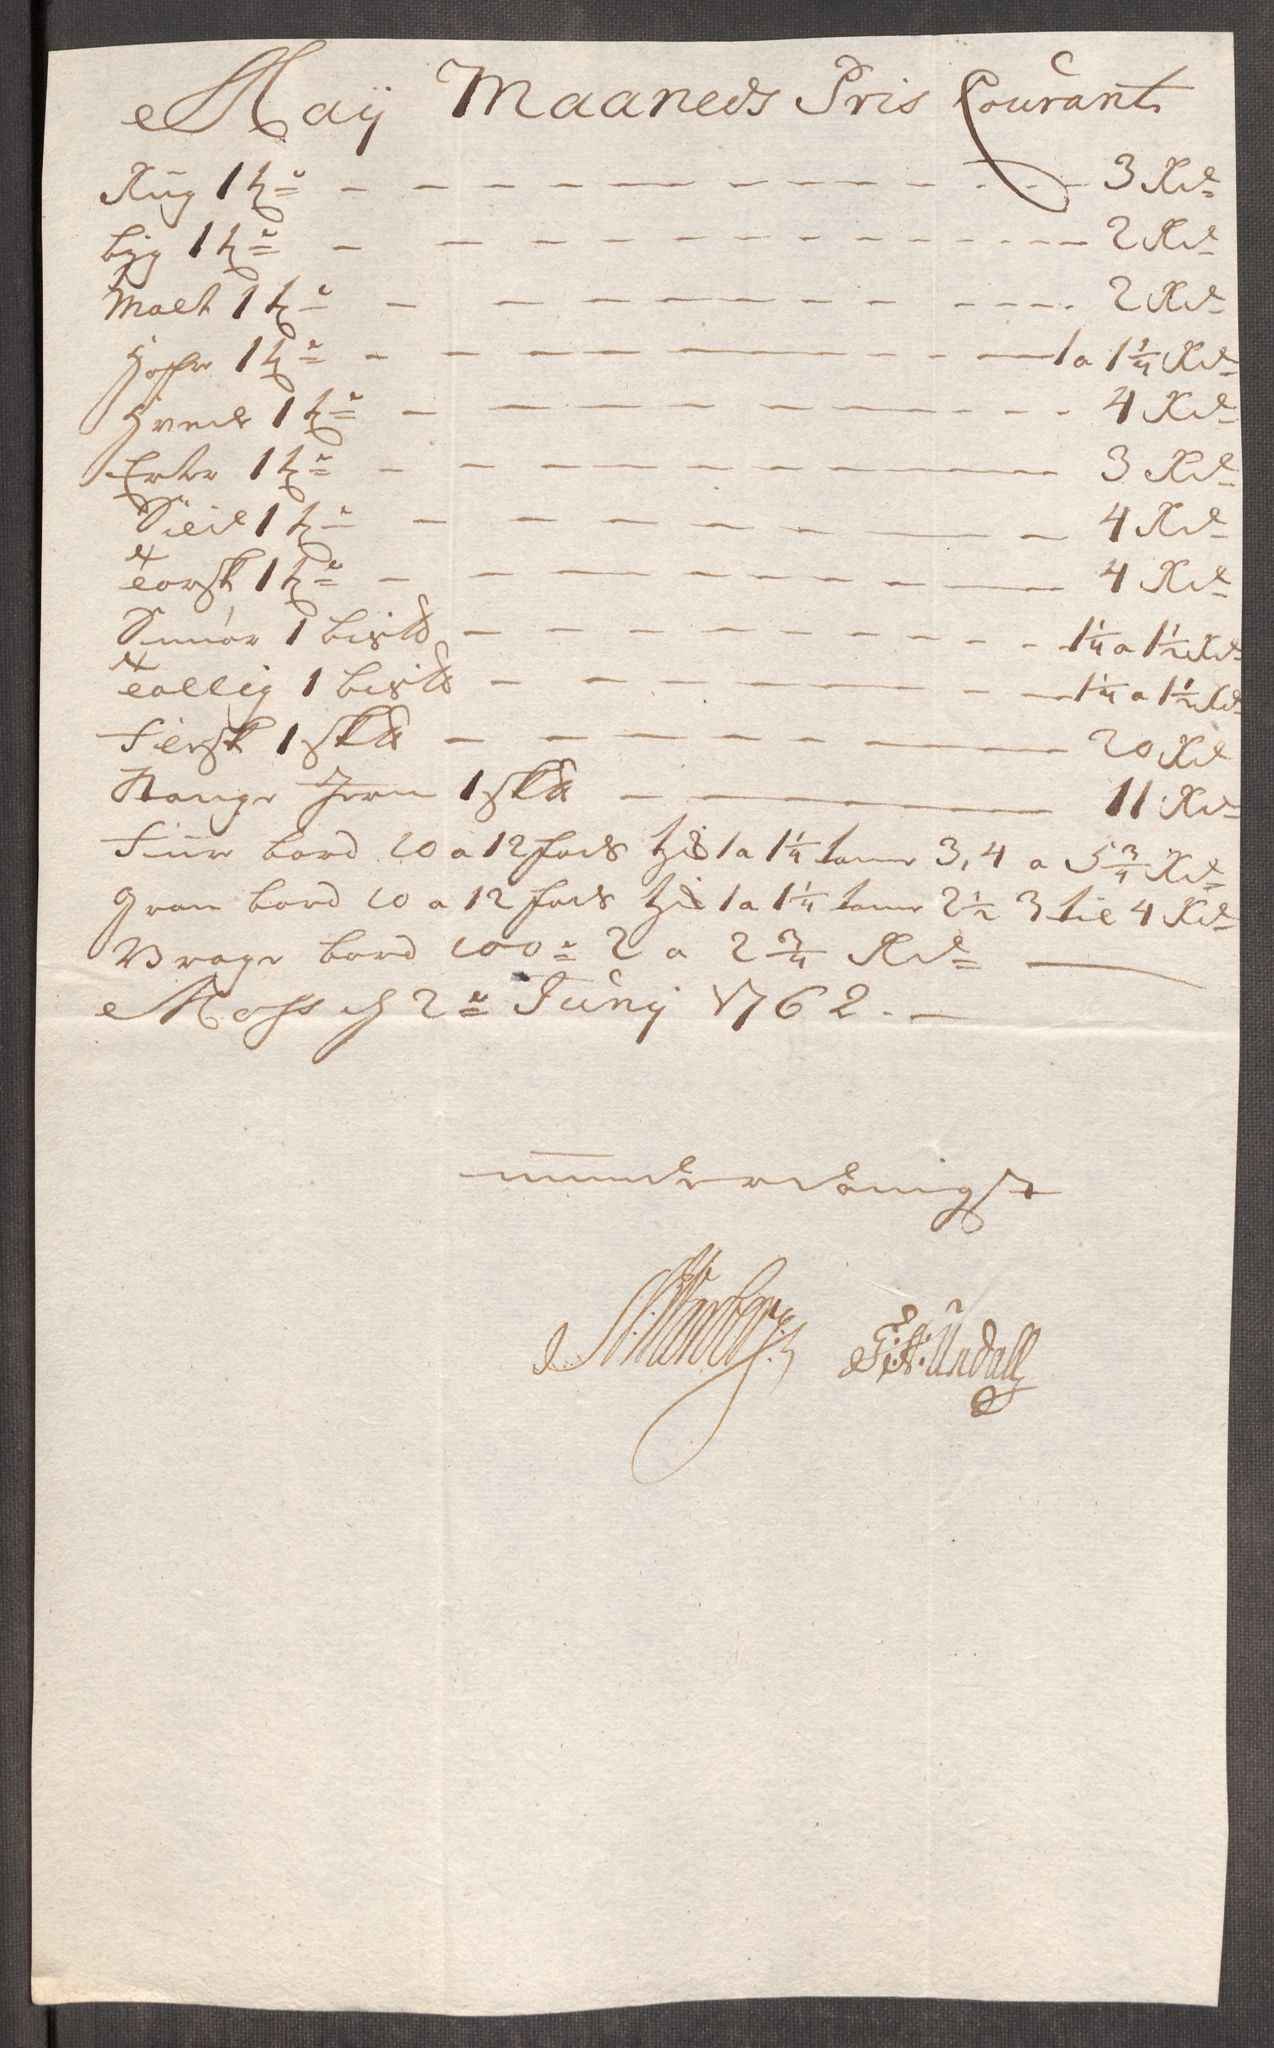 Maij Maaneds Pris Courant
Rug 1 tr - 3 Rd
byg 1 tr - 2 Rd
Malt 1 tr - 2 Rd
Hafre 1 tr - 1 a 1 1/4 Rd
Hvede 1 tr - 4 Rd
Erter 1 tr - 3 Rd
Sild 1 tr - 4 Rd
Torsk 1 tr - 4 Rd
Smör 1 bis℔ - 1 1/4 a 1 1/2 Rd
Tallig 1 bis℔ - 1 1/4 a 1 1/2 Rd
Fiersk 1 sk℔ - 20 Rd
Stange Jern 1 sk℔ - 11 Rd
Füür bord 10 a 12 fods 1 a 1 1/4 tomr 3, 4 a 5 3/4 Rd
Gran bord 10 a 12 fods 1 a 1 1/4 tomr 2 1/2 3 til 4 Rd
Vrage bord 100 2 a 2 3/4 Rd
Moss d 2 Junij 1762.
underdanigst